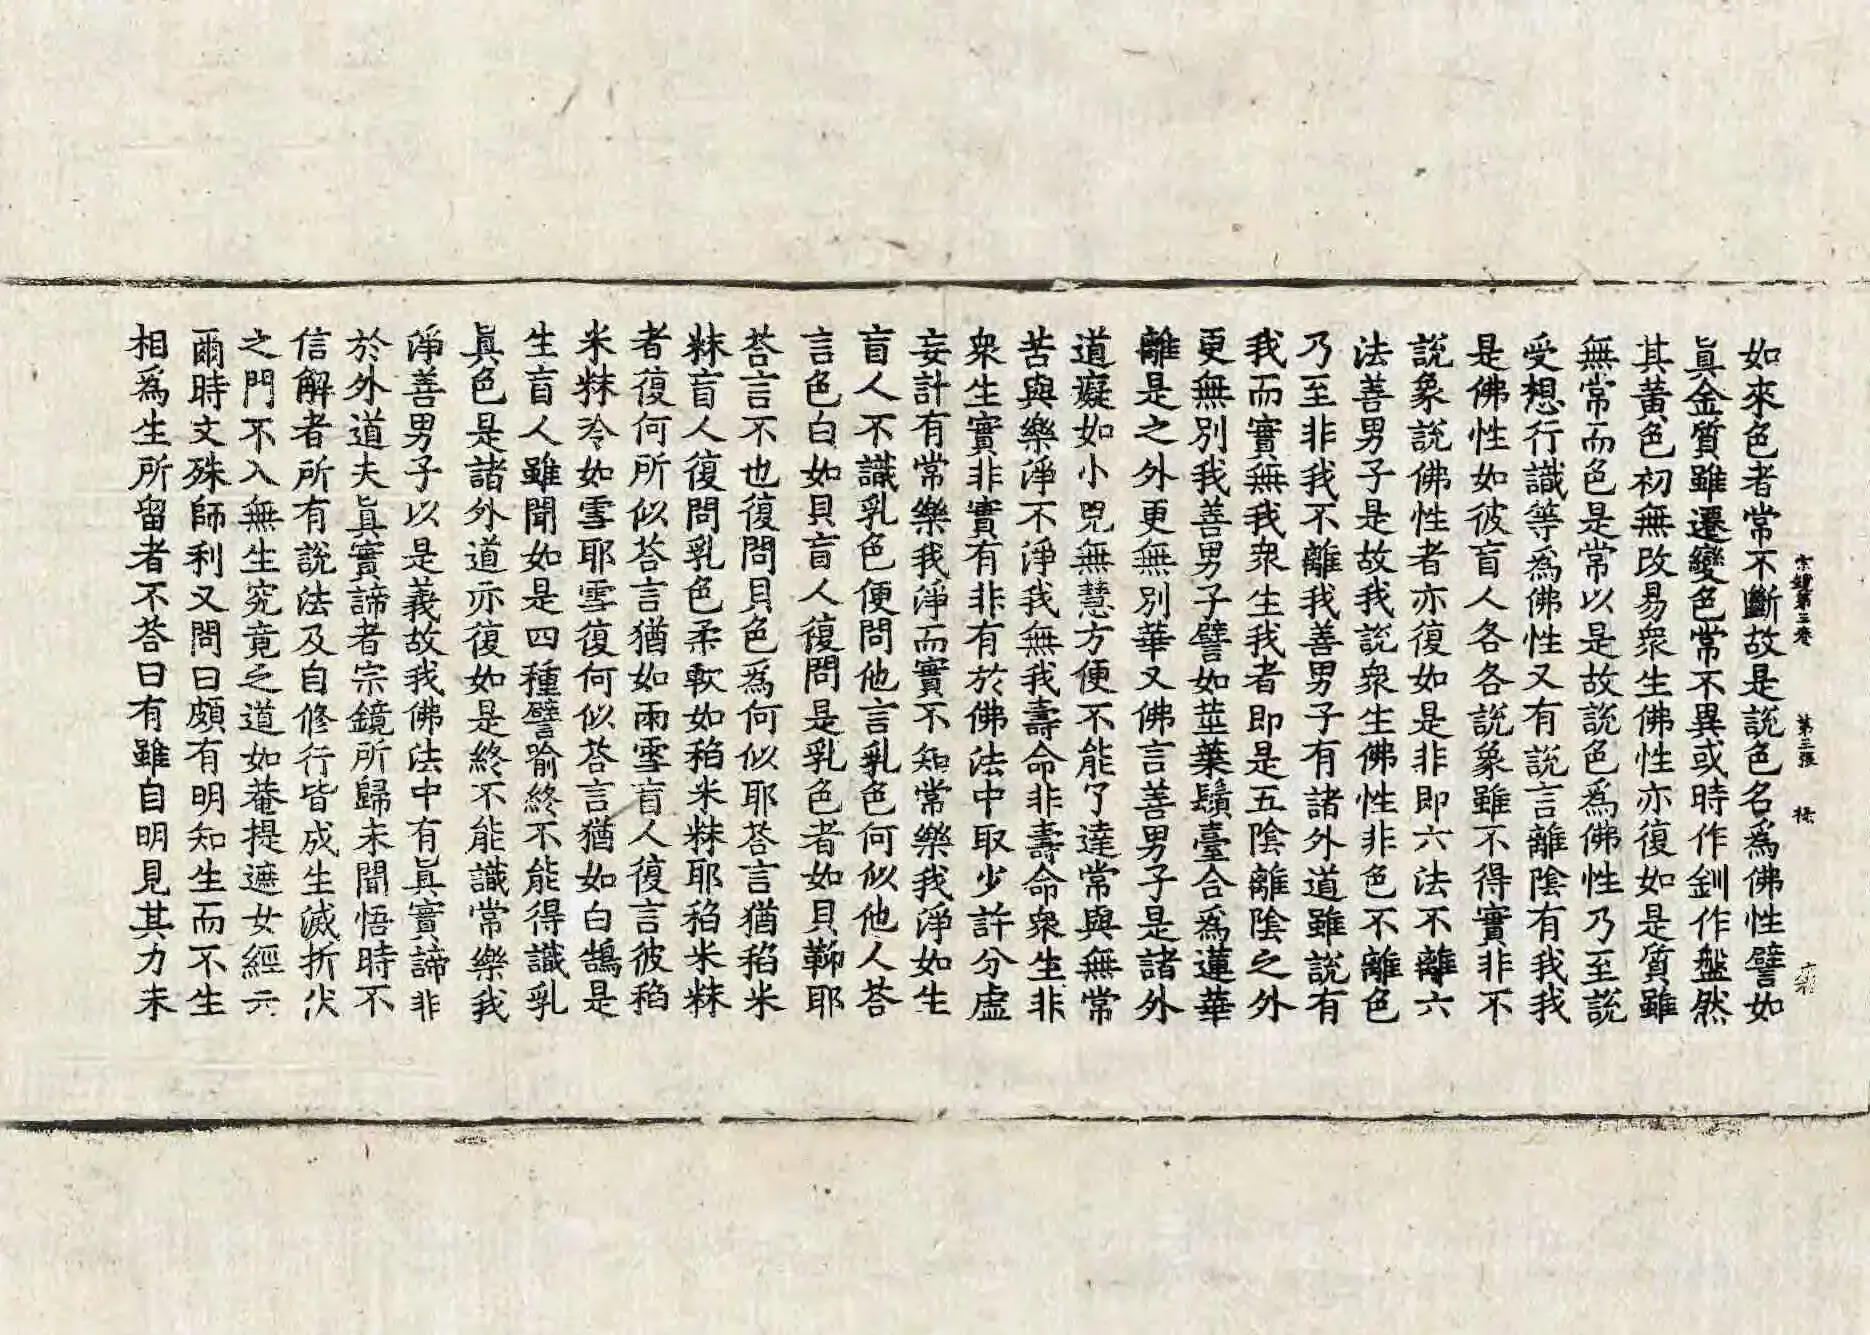 宗鏡第三卷 第三張
如來色者常不斷故是說色名爲佛性譬如
眞金質雖遷變色常不異或時作釧作盤然
其黃色初無改易衆生佛性亦復如是質雖
無常而色是常以是故說色爲佛性乃至說
受想行識等爲佛性又有說言離陰有我我
是佛性如彼盲人各各說象雖不得實非不
說象說佛性者亦復如是非即六法不離六
法善男子是故我說衆生佛性非色不離色
乃至非我不離我善男子有諸外道雖說有
我而實無我衆生我者即是五陰離陰之外
更無別我善男子譬如莖葉鬚臺合爲蓮華
離是之外更無別華又佛言善男子是諸外
道癡如小兒無慧方便不能了達常與無常
苦與樂淨不淨我無我壽命非壽命衆生非
衆生實非實有非有於佛法中取少許分虛
妄計有常樂我淨而實不知常樂我淨如生
盲人不識乳色便問他言乳色何似他人荅
言色白如貝盲人復問是乳色者如貝聲耶
荅言不也復問貝色爲何似耶荅言猶稻米
粖盲人復問乳色柔軟如稻米粖耶稻米粖
者復何所似荅言猶如雨雪盲人復言彼稻
米粖冷如雪耶雪復何似荅言猶如白鵠是
生盲人雖聞如是四種譬喻終不能得識乳
眞色是諸外道亦復如是終不能識常樂我
淨善男子以是義故我佛法中有眞實諦非
於外道夫眞實諦者宗鏡所歸未聞悟時不
信解者所有說法及自修行皆成生滅折伏
之門不入無生究竟之道如菴提遮女經云
爾時文殊師利又問曰頗有明知生而不生
相爲生所留者不荅曰有雖自明見其力未